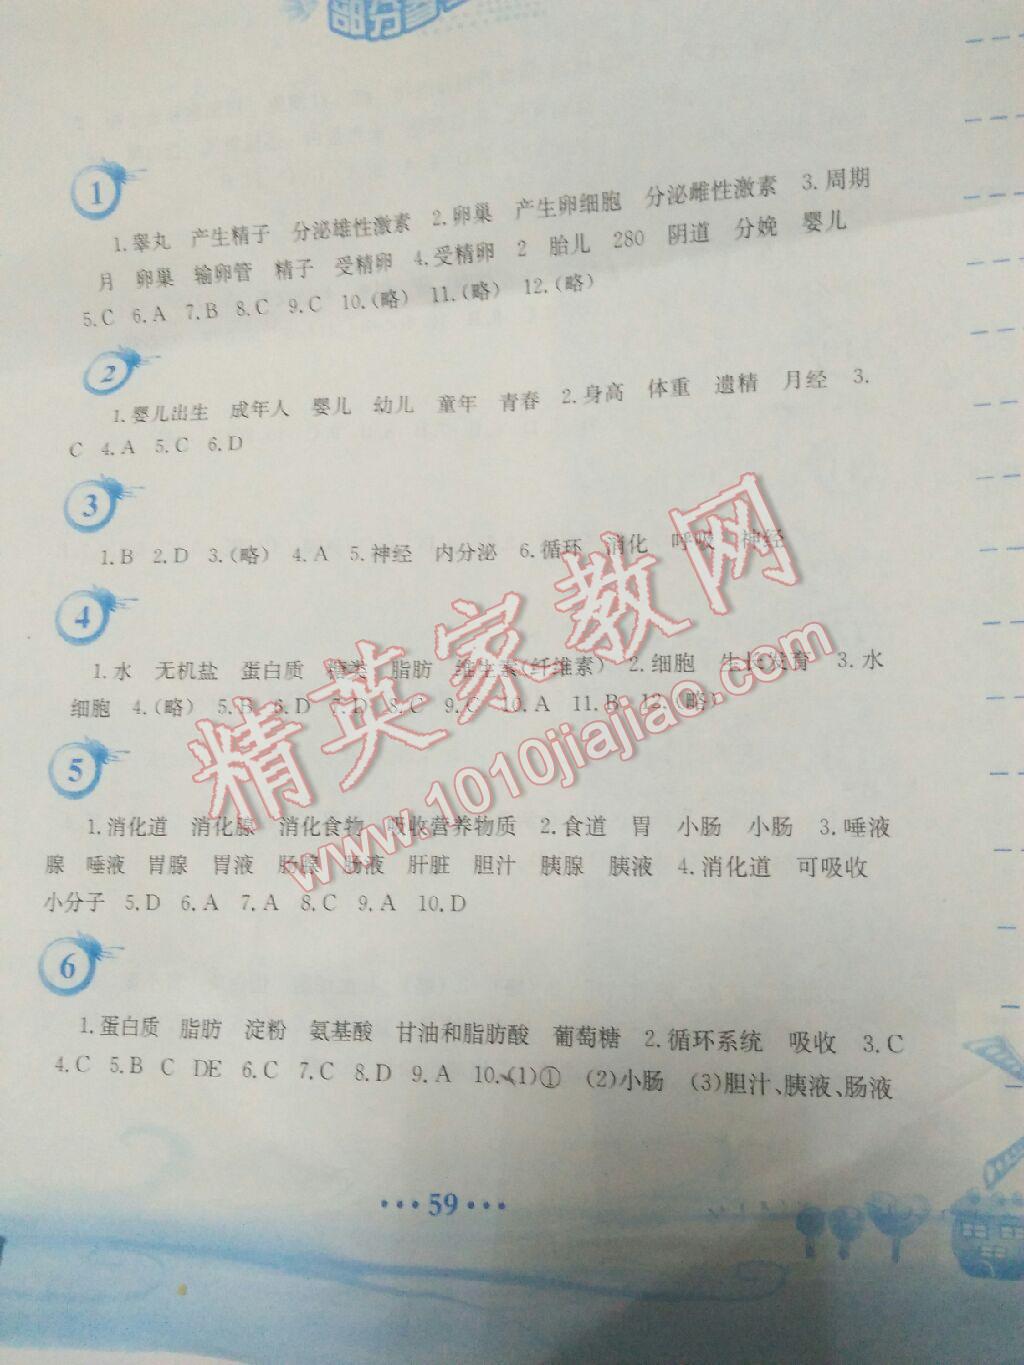 部分参
1
1.睾丸 产生精子 分泌雄性激素 2.卵巢 产生卵细胞 分泌雌性激素 3.周期
月 卵巢 输卵管 精子 受精卵 4.受精卵 2 胎儿 280 阴道 分娩 婴儿
5.C 6.A 7.B 8.C 9.C 10.(略) 11.(略) 12.(略)
2
1.婴儿出生 成年人 婴儿 幼儿 童年 青春 2.身高 体重 遗精 月经 3.
C 4.A 5.C 6.D
3
1.B 2.D 3.(略) 4.A 5.神经 内分泌 6.循环 消化 呼吸 神经
4
1.水 无机盐 蛋白质 糖类 脂肪 维生素(纤维素) 2.细胞 生长发育 3.水
细胞 4.(略) 5.B 6.D 7.D 8.C 9.C 10.A 11.B 12.(略)
5
1.消化道 消化腺 消化食物 吸收营养物质 2.食道 胃 小肠 小肠 3.唾液
腺 唾液 胃腺 胃液 肠腺 肠液 肝脏 胆汁 胰腺 胰液 4.消化道 可吸收
小分子 5.D 6.A 7.A 8.C 9.A 10.D
6
1.蛋白质 脂肪 淀粉 氨基酸 甘油和脂肪酸 葡萄糖 2.循环系统 吸收 3.C
4.C 5.B C DE 6.C 7.C 8.D 9.A 10.(1)① (2)小肠 (3)胆汁、胰液、肠液
···59···
精英家教网
www.1010jiajiao.com